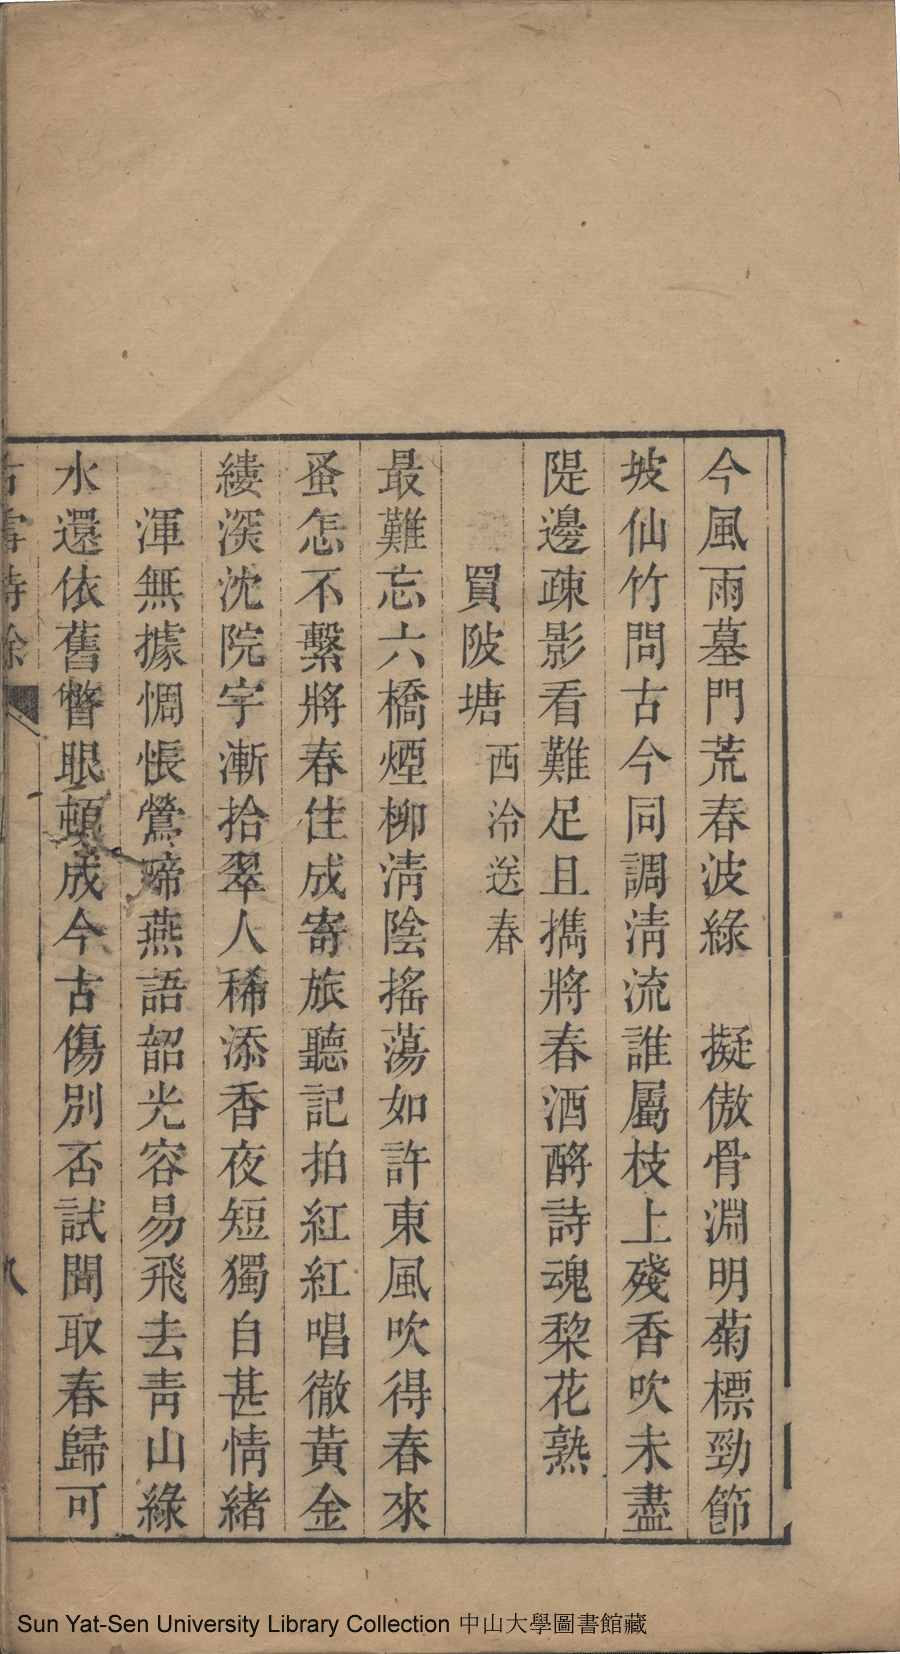 今風雨墓門荒春波綠　擬傲骨淵明菊標勁節
坡仙竹問古今同調清流誰屬枝上殘香吹未盡
隄邊疎影看難足且攜將春酒酹詩魂棃花熟
買陂塘 西泠送春
最難忘六橋煙柳淸陰搖蕩如許東風吹得春來
蚤怎不繫將春住成寄旅聽記拍紅紅唱徹黃金
縷深沈院宇漸拾翠人稀添香夜短獨自甚情緒
渾無據惆悵鶯啼燕語韶光容易飛去靑山綠
水還依舊瞥眼頓成今古傷別否試問取春歸可
Sun Yat-Sen University Library Collection 中山大學圖書館藏